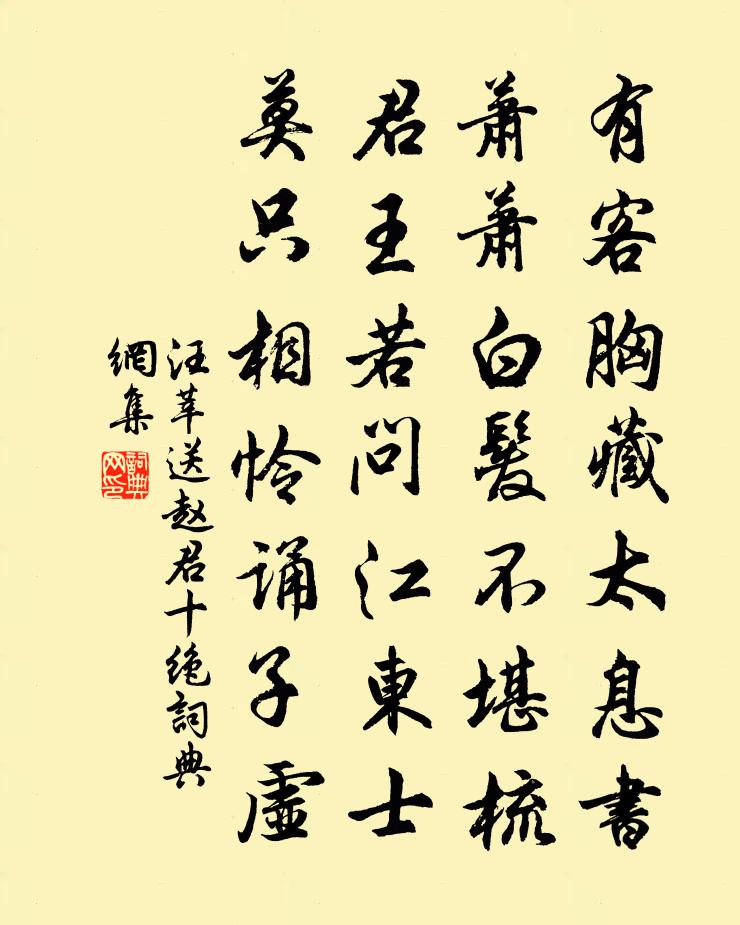 有客胸藏太息書
蕭蕭白髮不堪梳
君王若问江東士
莫只相怜诵子虛
汪莘送赵君十绝詞典
網集
詞典网印